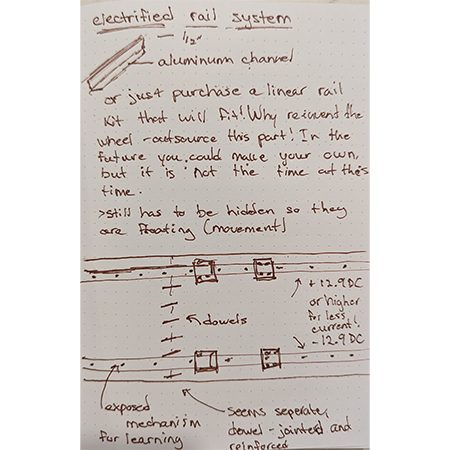 electrified rail system
— 1/2"
aluminum channel
or just purchase a linear rail
kit that will fit! Why reinvent the
wheel - outsource this part! In the
future you could make your own,
but it is not the time at this
time.
>still has to be hidden so they
are floating (movement)
+12.9DC
or higher
for less
current!
-12.9DC
dowels
exposed
mechanism
for learning
seems seperate,
dowel-jointed and
reinforced